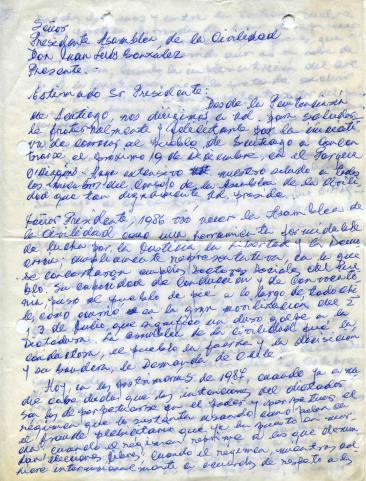 Señor
Presidente Asamblea de la Civilidad
Don Juan Luis González
Presente.-
Estimado Sr. Presidente:
Desde la Penitenciaría
de Santiago, nos dirigimos a Ud. para saludar
le fraternalmente y felicitarle por la iniciati
va de convocar al pueblo de Santiago a concen
trarse el próximo 19 de Diciembre, en el Parque
O'Higgins. Hago extensivo nuestro saludo a todos
los miembros del Consejo de la Asamblea de la Civili
dad que tan dignamente Ud. preside.
Señor Presidente, 1986 vio nacer la Asamblea de
la Civilidad como una herramienta formidable
de lucha por la Justicia la Libertad y la Demo
cracia; ampliamente representativa, en la que
se concertaron amplios sectores sociales del Pue
blo. Su capacidad de conducción y de convocato
ria puso al pueblo de pie a lo largo de todo Chi
le, como ocurrió en la gran movilización del 2
y 3 de Julio, que significó un duro golpe a la
Dictadura. La Asamblea de la Civilidad fue la
conductora, el pueblo la fuerza y la decisión
y su bandera, la Demanda de Chile.
Hoy, en las postrimerías de 1987, cuando ya a na
die cabe duda que las intenciones del dictador
son las de perpetuarse en el poder y perpetuar el
régimen que lo sustenta usando como
el fraude plebiscitario que ya ha puesto en mar
cha; cuando el régimen reprime a los que deman
dan elecciones libres; cuando el régimen, mientras ad
hiere internacionalmente a acuerdos de respeto a los